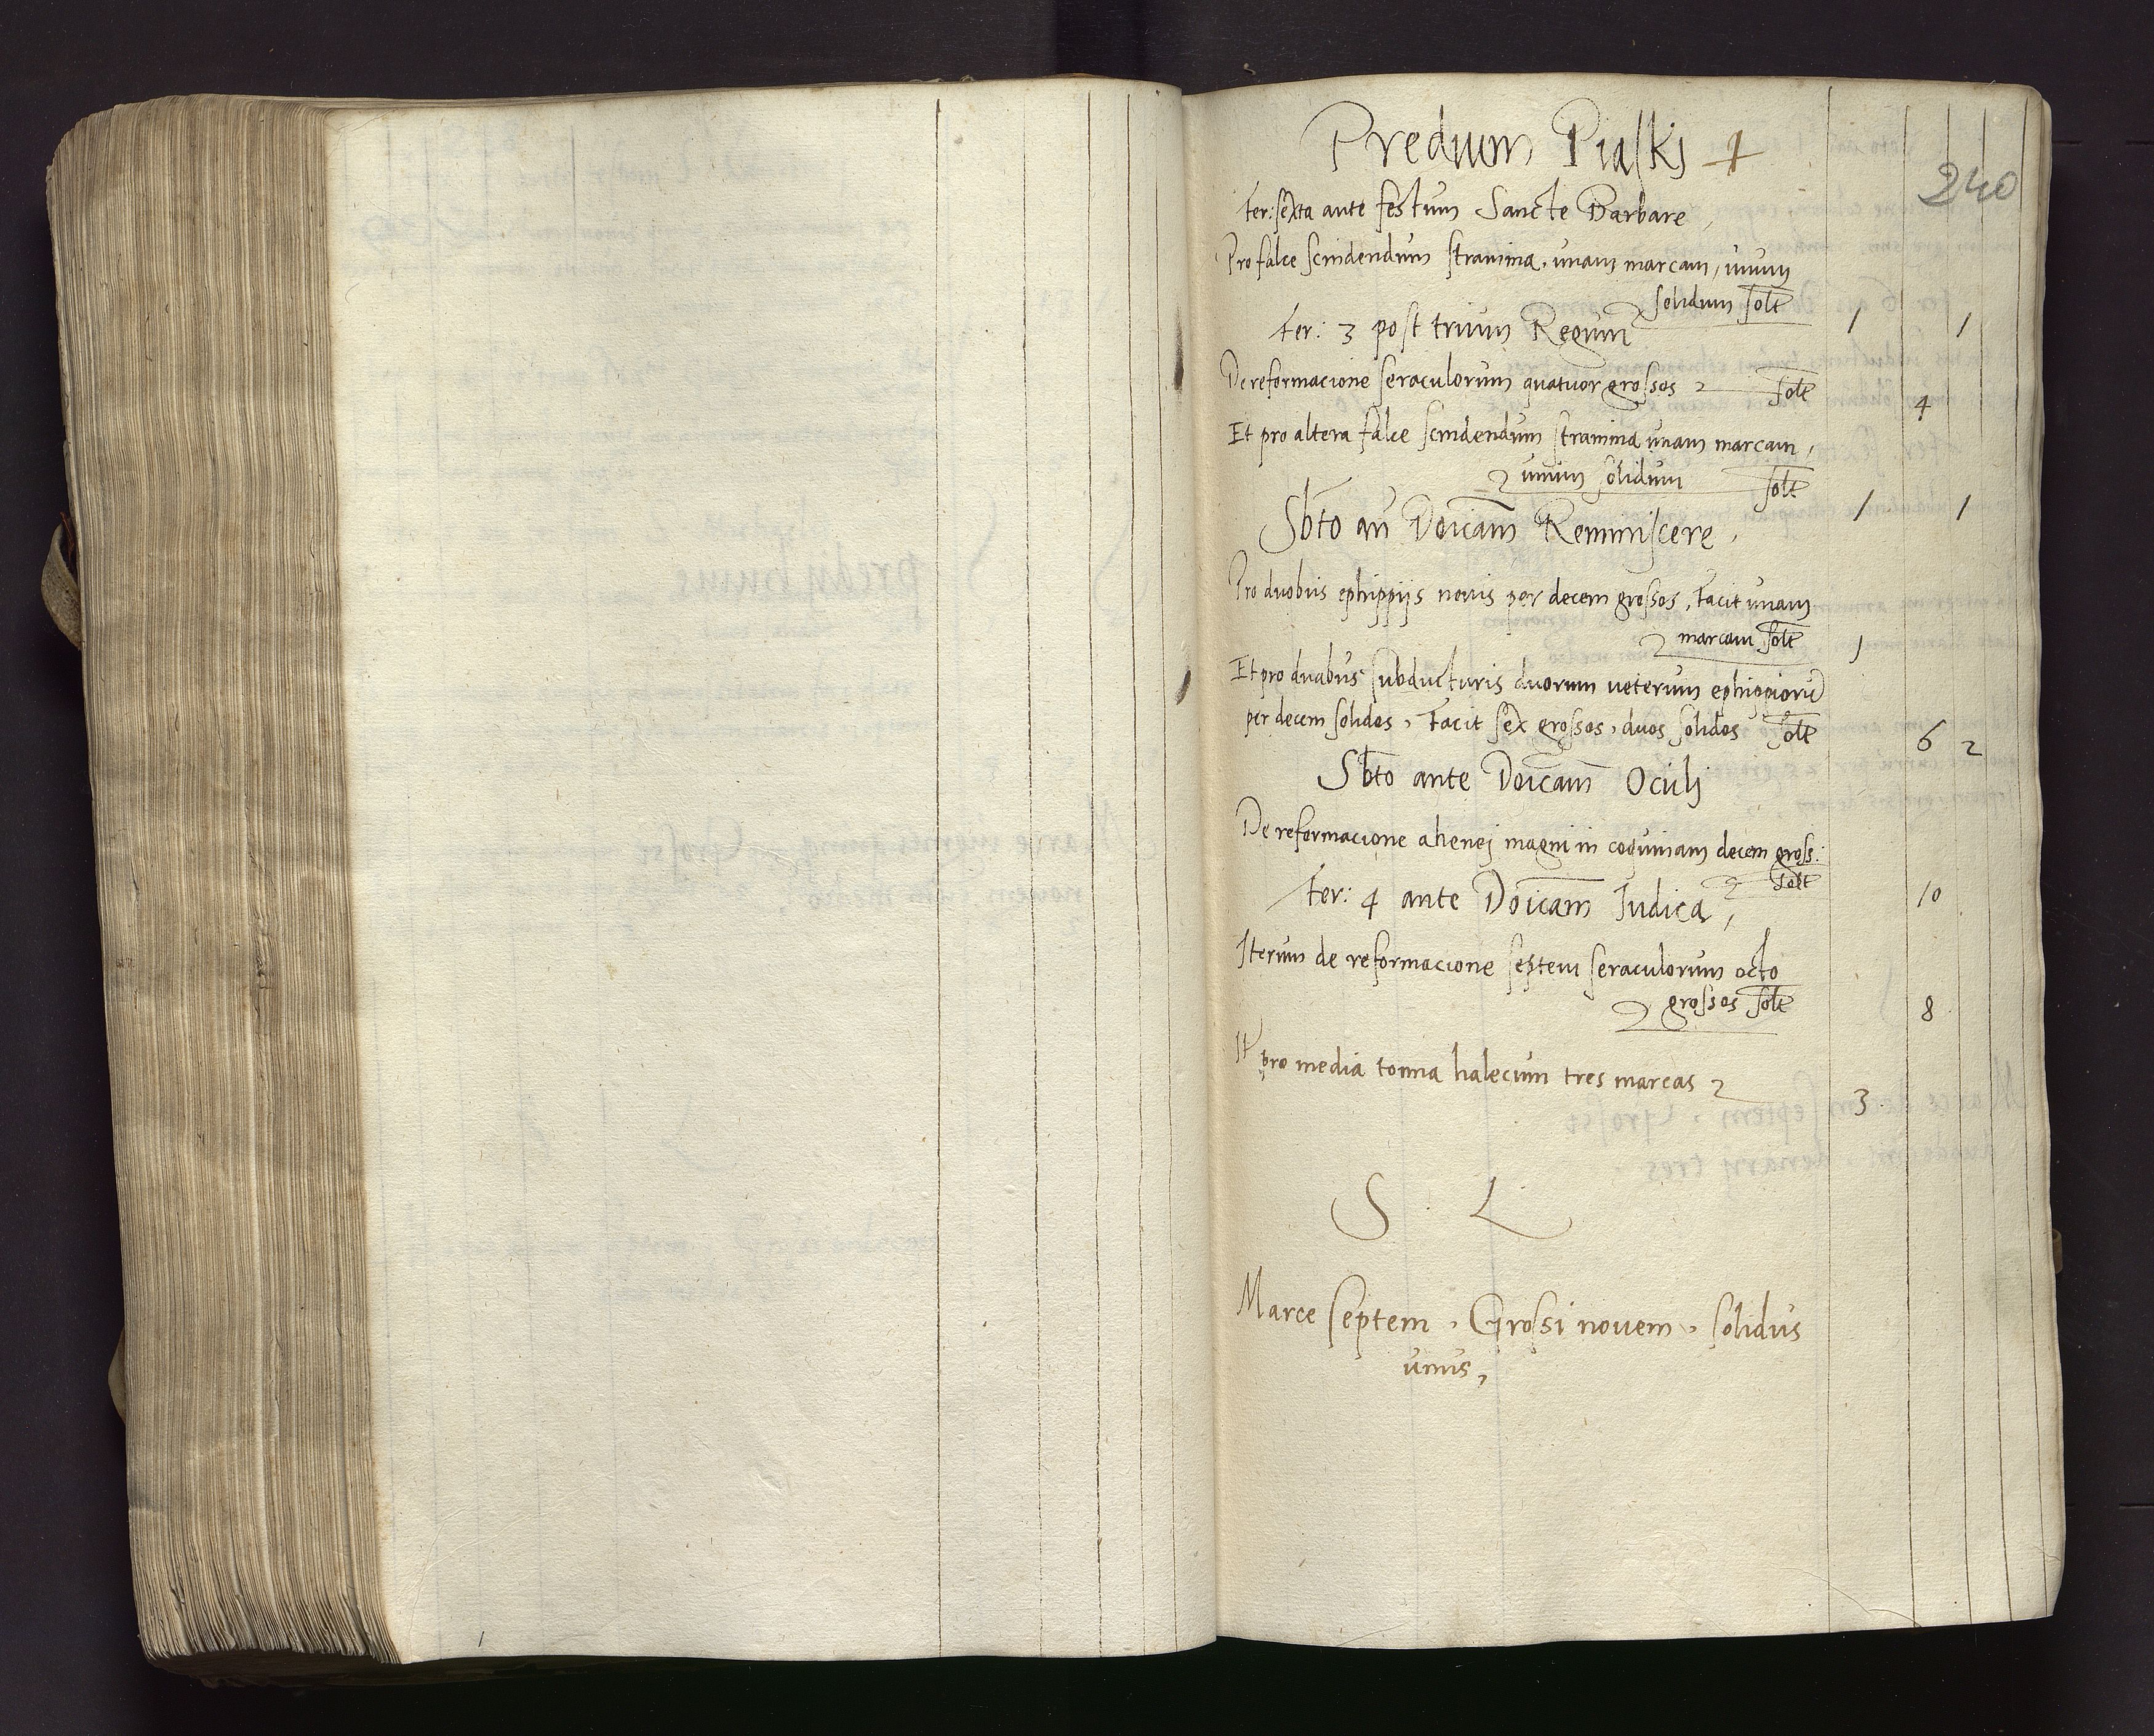 Predium Piaskj
240
Fer: sexta ante festum Sancte Barbare,
Pro falce scindendum stramina, unam marcam, unum
solidum solt 1 1
Fer: 3 post trium Regum
De reformacione seraculorum quatuor grossos solt 4
Et pro altera falce scindendum stramina unam marcam,
unum solidum solt 1 1
Sbto an Doicam Reminiscere,
Pro duobus ephippijs nouis per decem grossos, facit unam
marcam solt 1
Et pro duabus subducturis duorum ueterum ephippiorum
per decem solidos, facit sex grossos, duos solidos solt 6 2
Sbto ante Doicam Oculj
De reformacione ahenej magni in coquinam decem gross:
solt 10
Fer: 4 ante Doicam Iudica,
Iterum de reformacione septem seraculorum octo
grossos solt 8
It pro media tonna halecum tres marcas 3
S L
Marce septem, Grossi nouem, solidus
unus,